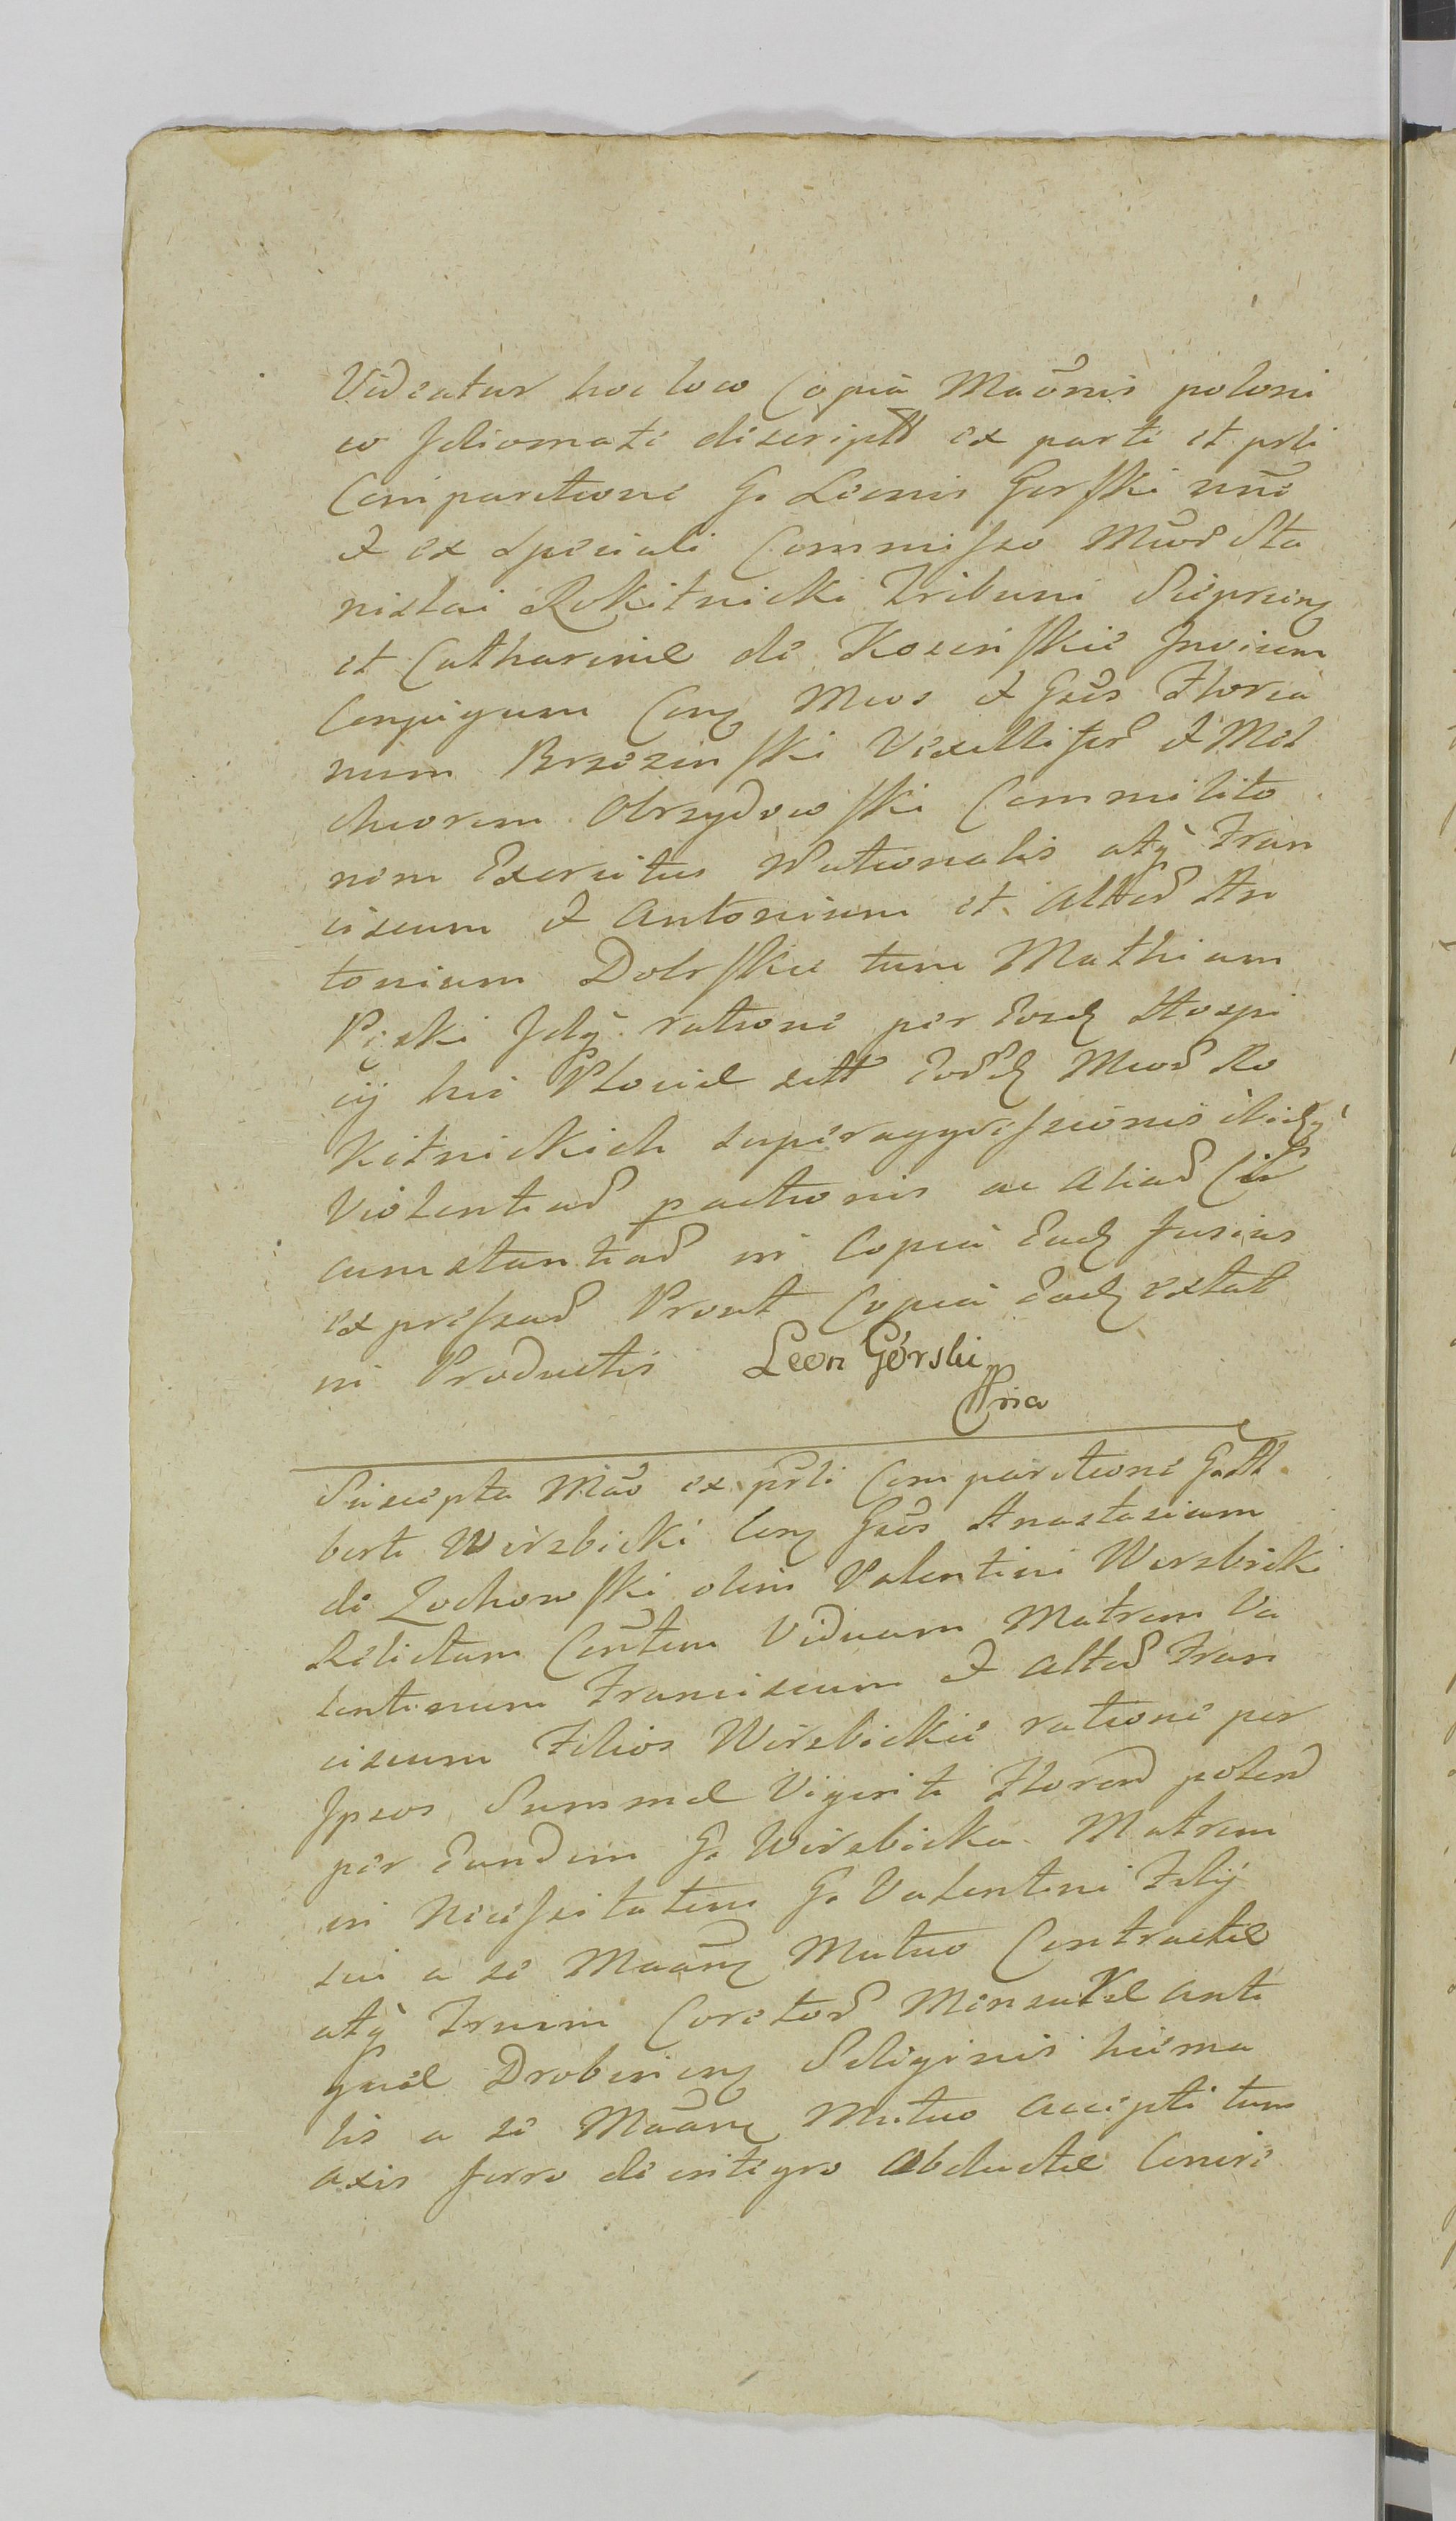 Videatur hoc loco Copia Maõnis poloni
co Idiomate descriptæ ex parte et prli
Comparitione G. Leonis Gorski nne
& ex speciali Commisso Mcor Sta
nislai Rokitnicki Tribuni Sieprcen
et Catharinæ de Kosinskie Invicem
Conjugum Con Mcos & Gsos Floria
num Brzezinski Vexillifer & Mel
chiorem Obrzydowski Commilito
nem Exercitus Nationalis atq Fran
ciscum & Antonium et alter An
tonium Dobrskie tum Mathiam
Pęski Idq ratione per Eosd Hospi
cij hic Plociæ sitt Eord Mcor Ro
kitnickich superaggressionis ibidq
Violentar pactionis ac aliar Cir
cumstantiar in Copia Ead fusius
expressar Prout Copia Ead extat
in Productis Leon Górski
mpria
Suscepta Mão ex prli Comparitione G. Al
berti Wirzbicki Con Gsos Anastasiam
de Zochowski olim Valentini Wirzbicki
Relictam Contem Viduam Matrem Va
lentinum Franciscum & alter Fran
ciscum Filios Wirzbickie ratione per
Ipsos Summæ Viginti Floren polon
per Eundem G. Wirzbicka Matrem
in Necessitatem G. Valentini Filij
sui a se Maan Mutuo Contractæ
atq Trium Coretor Mensuræ anti
quæ Drobinen Siliginis hiema
lis a se Maan Mutuo accepti tum
axis ferro de integro Obductæ Conve